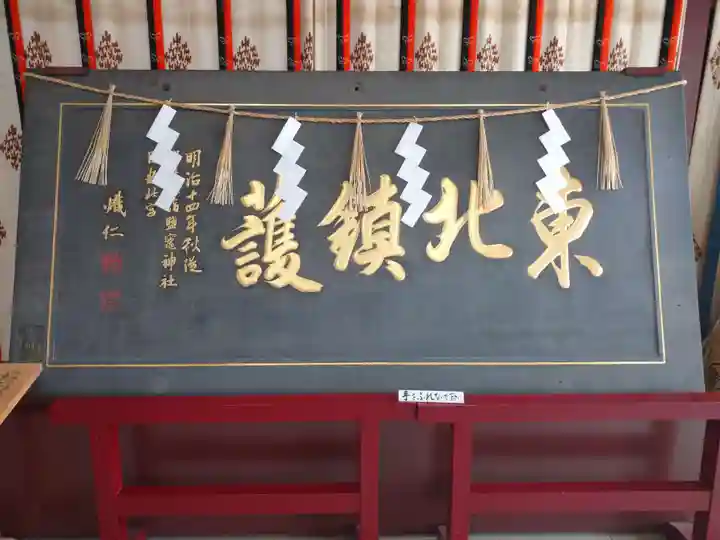 東北鎮護
明治十四年秋後
詣鹽竈神社
熾仁
手をふれないで下さい